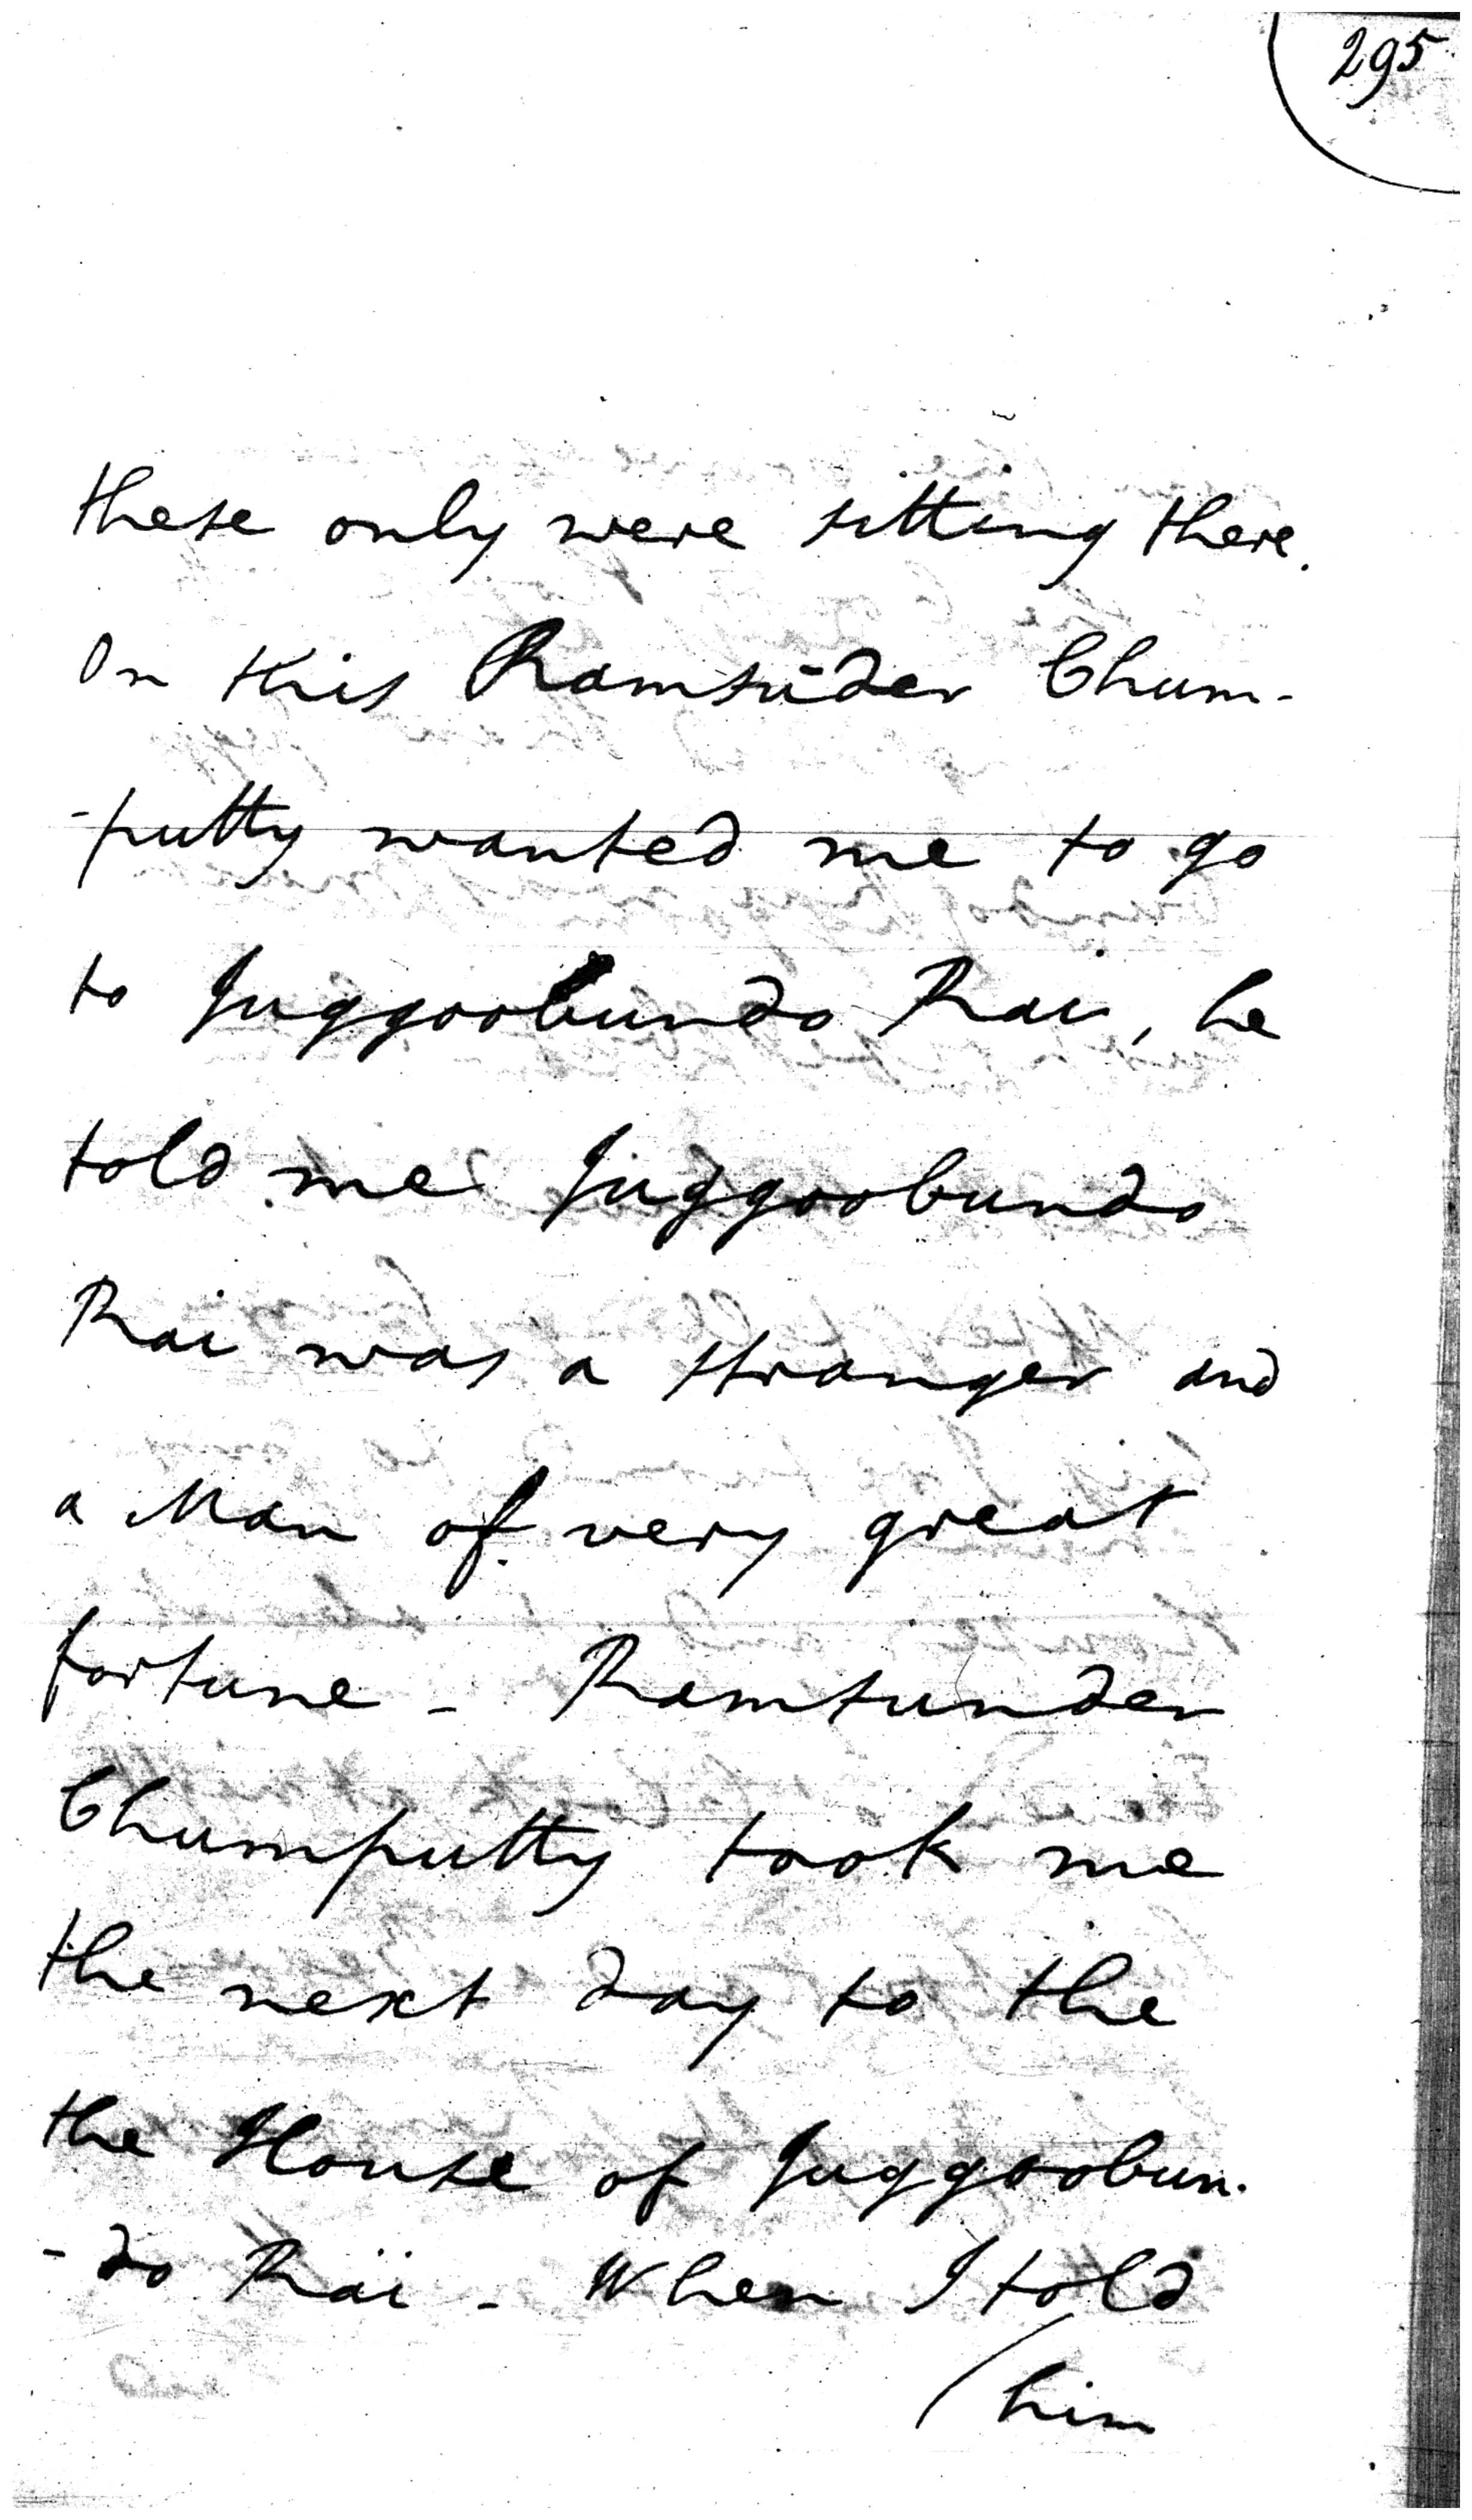 295
these only were sitting there.
On this Ramsūder Chum-
-putty wanted me to go
to Juggoobundo Rai, he
told me Juggoobundo
Rai was a stranger and
a Man of very great
fortune - Ramsunder
Chumputty took me
the next day to the
the House of Juggoobun-
-do Rai - When I told
him